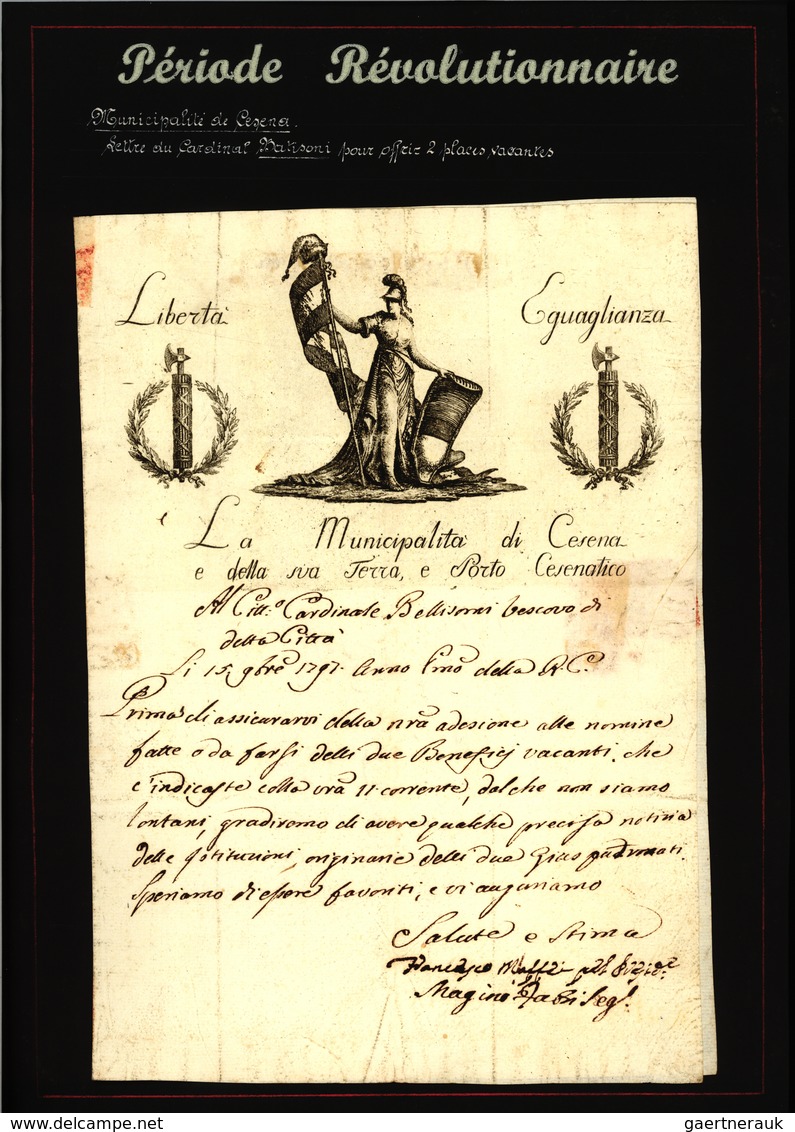 Période Révolutionnaire
Municipalité de Cesena.
Lettre du Cardinal Batisoni pour offrir 2 places vacantes
Libertà
Eguaglianza
La Municipalità di Cesena
e della sua Terra, e Porto Cesenatico
Al Citt.º Cardinale Bellisomi Vescovo di
detta Città
Li 15. 9bre 1797. Anno Pmo della R. C.
Prima di assicurarvi della nrã adesione alle nomine
fatte o da farsi delli due Beneficj vacanti, che
c'indicaste colla vrã 11 corrente, dal che non siamo
lontani, gradiremo di avere qualche precisa notizia
delle Istituzioni originarie delli due Gius padronati.
Speriamo di essere favoriti, e vi auguriamo
Salute e Stima
Francesco Maffei
Magino Fabri Seg.
delcampe.net
gaertnerauk